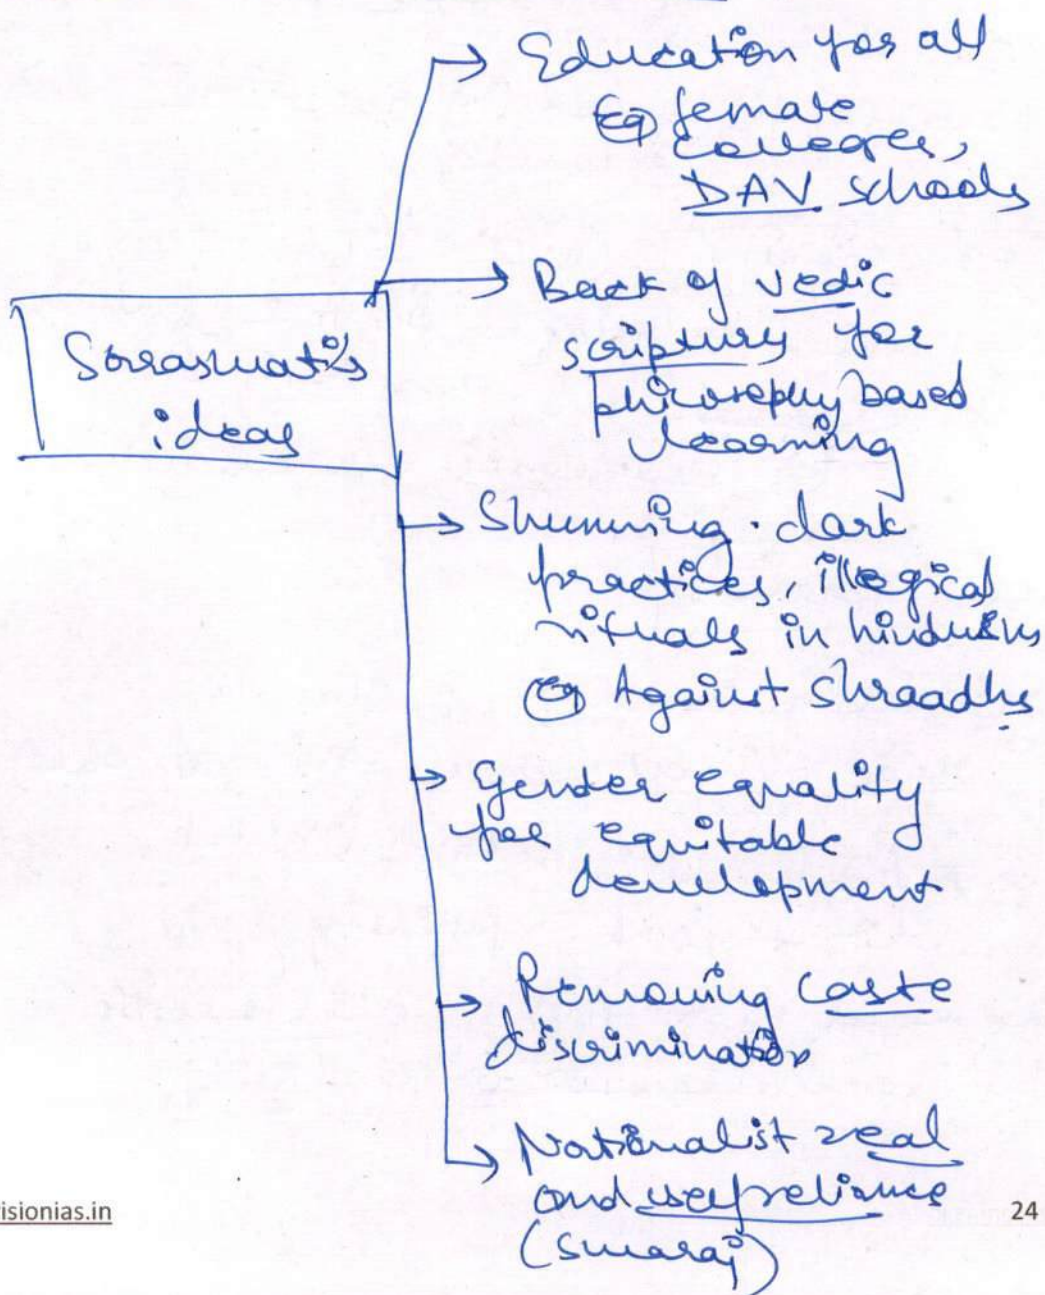 Education for all
Eg female
colleges,
DAV schools
Back of vedic
scriptury for
philosophy based
learning
Sarraswati's
ideas
Shunning dark
practices, illogical
rituals in hinduism
Eg Against shraadhs
Gender Equality
for equitable
development
Removing caste
discrimination
Nationalist zeal
and self reliance
(swaraj)
isionias.in
24